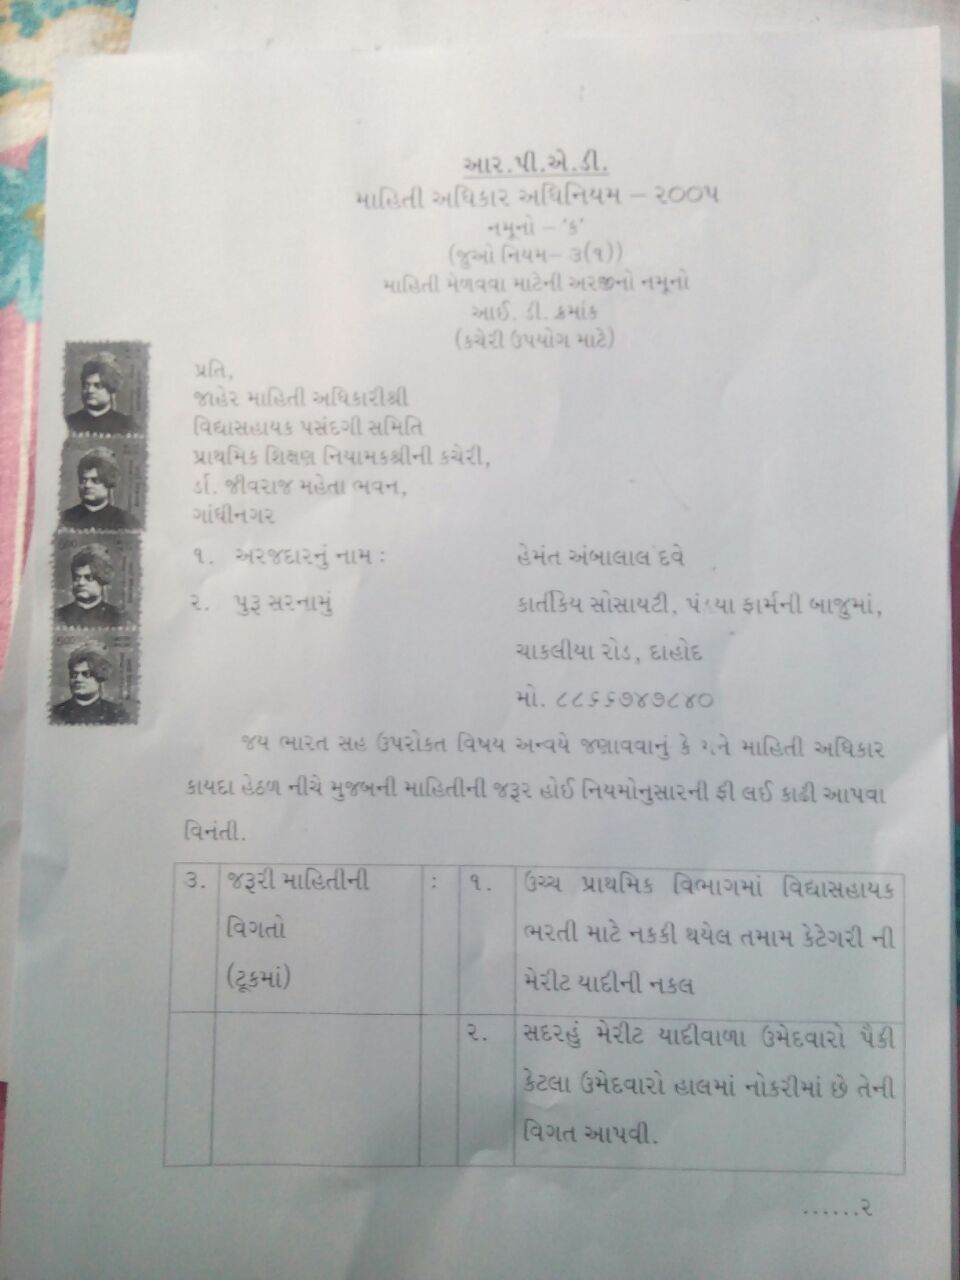 આર.પી.એ.ડી.
માહિતી અધિકાર અધિનિયમ – ૨૦૦૫
નમૂનો – ‘ક’
(જુઓ નિયમ– ૩(૧))
માહિતી મેળવવા માટેની અરજીનો નમૂનો
આઈ. ડી. ક્રમાંક
(કચેરી ઉપયોગ માટે)
પ્રતિ,
જાહેર માહિતી અધિકારીશ્રી
વિદ્યાસહાયક પસંદગી સમિતિ
પ્રાથમિક શિક્ષણ નિયામકશ્રીની કચેરી,
ર્ડા. જીવરાજ મહેતા ભવન,
ગાંધીનગર
૧. અરજદારનું નામ : હેમંત અંબાલાલ દવે
૨. પુરૂ સરનામું કાર્તકિય સોસાયટી, ફાર્મની બાજુમાં,
ચાકલીયા રોડ, દાહોદ
મો. ૮૮૬૬૭૪૭૮૪૦
જય ભારત સહ ઉપરોકત વિષય અન્વયે જણાવવાનું કે માહિતી અધિકાર
કાયદા હેઠળ નીચે મુજબની માહિતીની જરૂર હોઈ નિયમોનુસારની ફી લઈ કાઢી આપવા
વિનંતી.
૩. જરૂરી માહિતીની : ૧. ઉચ્ચ પ્રાથમિક વિભાગમાં વિદ્યાસહાયક
વિગતો ભરતી માટે નકકી થયેલ તમામ કેટેગરી ની
(ટૂકમાં) મેરીટ યાદીની નકલ
૨. સદરહું મેરીટ યાદીવાળા ઉમેદવારો પૈકી
કેટલા ઉમેદવારો હાલમાં નોકરીમાં છે તેની
વિગત આપવી.
......૨